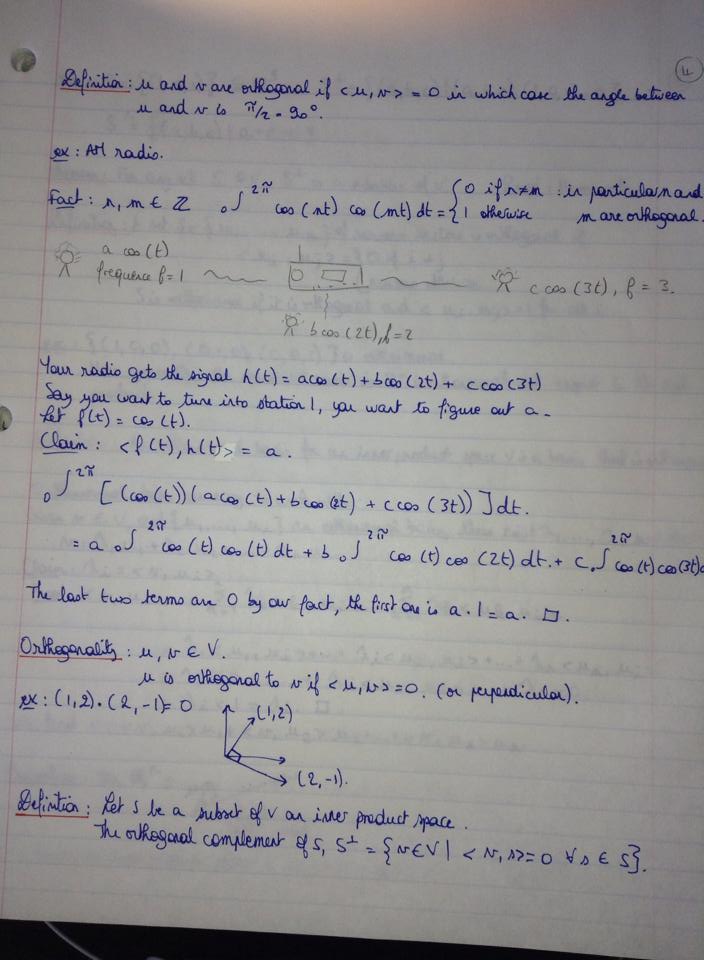 4
Definition: u and v are orthogonal if <u, v> = 0 in which case the angle between
u and v is π/2 = 90°.
ex: AM radio.
Fact: n, m ∈ ℤ ₀∫^2π cos(nt) cos(mt) dt = {0 if n≠m : in particular, n and
{1 otherwise m are orthogonal.
a cos(t)
frequence f=1
c cos(3t), f = 3.
b cos(2t), f=2
Your radio gets the signal h(t) = a cos(t) + b cos(2t) + c cos(3t)
Say you want to tune into station 1, you want to figure out a.
Let f(t) = cos(t).
Claim: <f(t), h(t)> = a.
₀∫^2π [(cos(t))(a cos(t) + b cos(2t) + c cos(3t))] dt.
= a ₀∫^2π cos(t) cos(t) dt + b ₀∫^2π cos(t) cos(2t) dt. + c ₀∫^2π cos(t) cos(3t) d
The last two terms are 0 by our fact, the first one is a · 1 = a. □.
Orthogonality: u, v ∈ V.
u is orthogonal to v if <u, v> = 0. (or perpendicular).
ex: (1,2) · (2,-1) = 0
(1,2)
(2,-1).
Definition: Let S be a subset of V an inner product space.
The orthogonal complement of S, S^⊥ = {v ∈ V | <v, s> = 0 ∀ s ∈ S}.